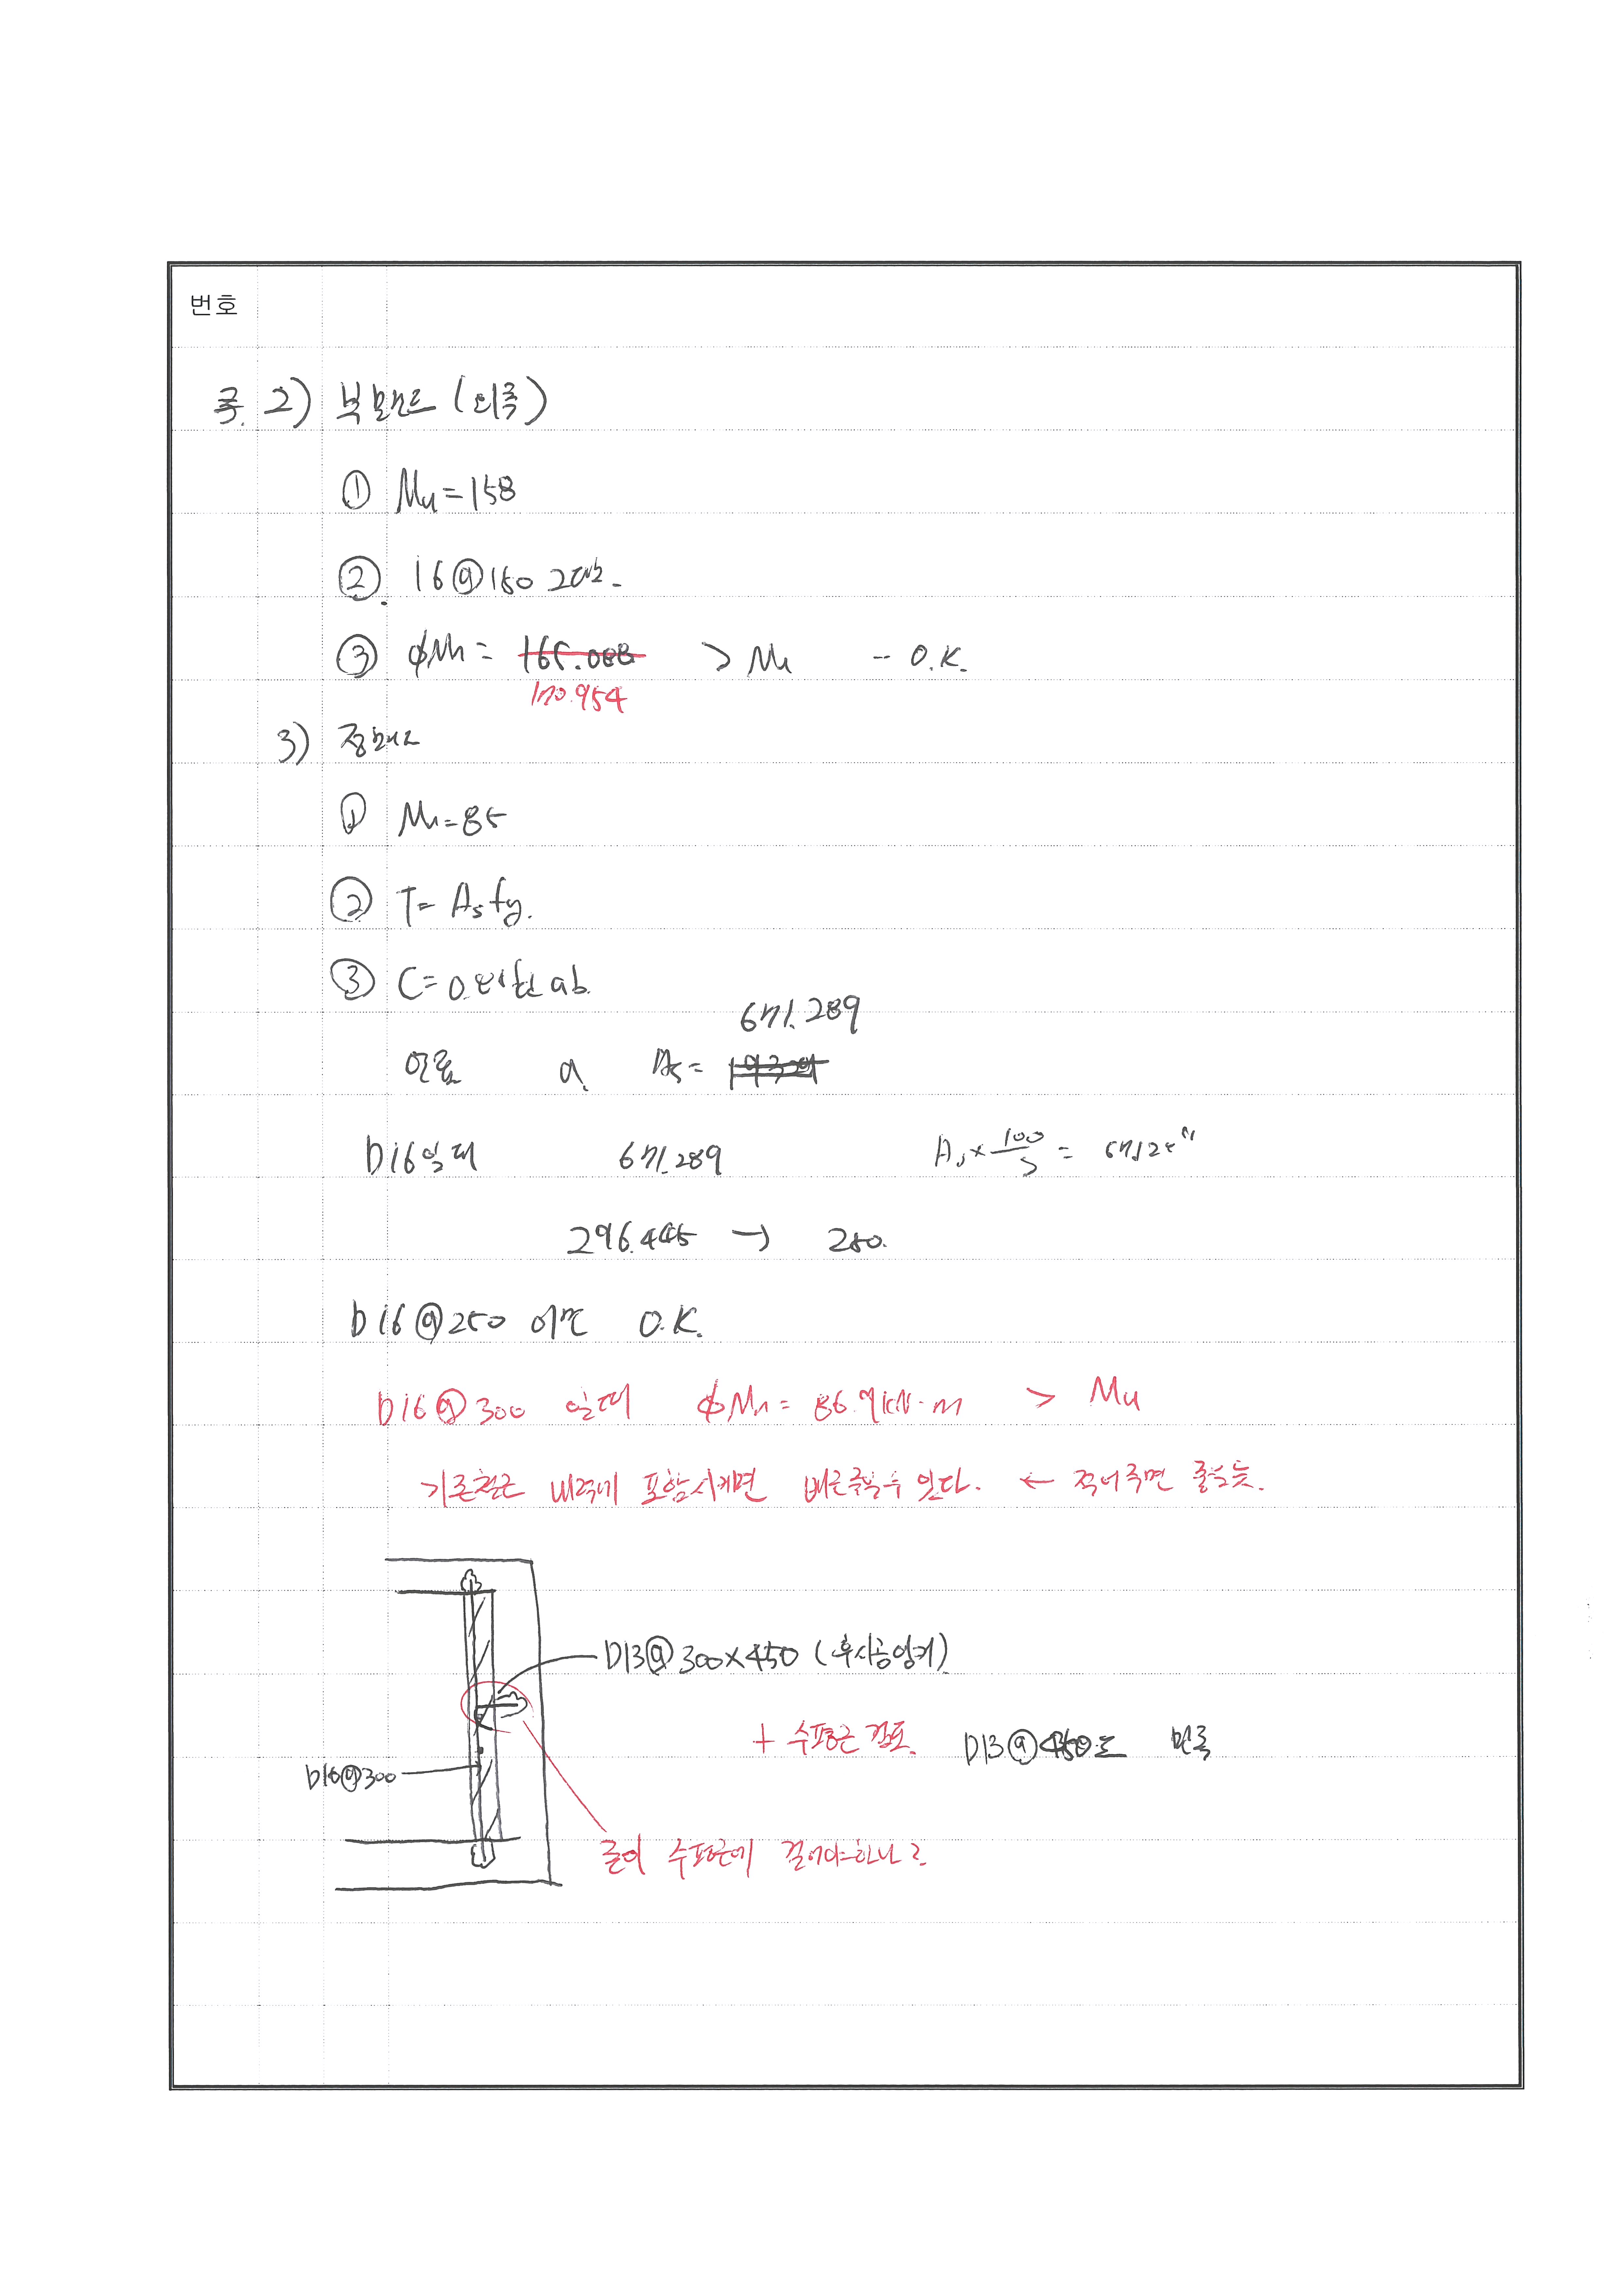 번호
2) 부모멘트 (외측)
① Mu = 158
② 16@150
③ φMn = 165.088 > Mu -- O.K.
170.954
3) 정모멘트
① Mu = 85
② T = As fy.
③ C = 0.85fck ab.
671.289
a. As =
D16일때 671.289 As × 100/S = 671.289
296.445 → 250.
D16@250 이면 O.K.
D16@300 일때 φMn = 86.9kN·m > Mu
기존철근 내력에 포함시키면 배근 줄일수 있다. ← 적어주면 좋을듯.
D13@300×450 (후시공앵커)
+ 수평근 검토. D13@450도 만족
D16@300
굳이 수평근에 걸어야하나?